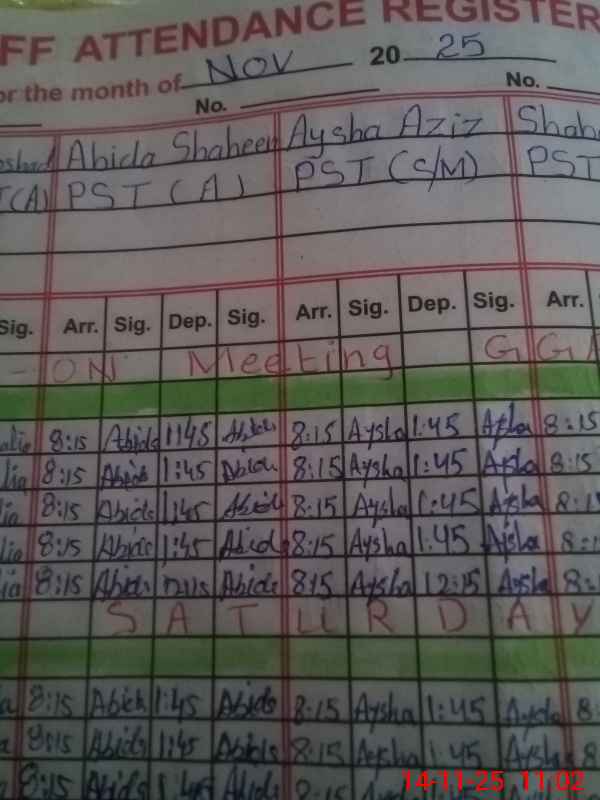 FF ATTENDANCE REGISTER
or the month of NOV 20 25
No. No.
Abida Shaheen Aysha Aziz Shah
T(A) PST (A) PST (S/M) PST
Sig. Arr. Sig. Dep. Sig. Arr. Sig. Dep. Sig. Arr.
ON Meeting GGA
8:15 Abida 1:45 Abida 8:15 Aysha 1:45 Aysha 8:15
8:15 Abida 1:45 Abida 8:15 Aysha 1:45 Aysha 8:15
8:15 Abida 1:45 Abida 8:15 Aysha 1:45 Aysha 8:1
8:15 Abida 1:45 Abida 8:15 Aysha 1:45 Aysha 8:1
8:15 Abida 12:15 Abida 8:15 Aysha 12:15 Aysha 8:
SATURDAY
8:15 Abida 1:45 Abida 8:15 Aysha 1:45 Aysha 8:
8:15 Abida 1:45 Abida 8:15 Aysha 1:45 Aysha 8
8:15 Abida 1:45 Abida 8:15
14-11-25 11:02